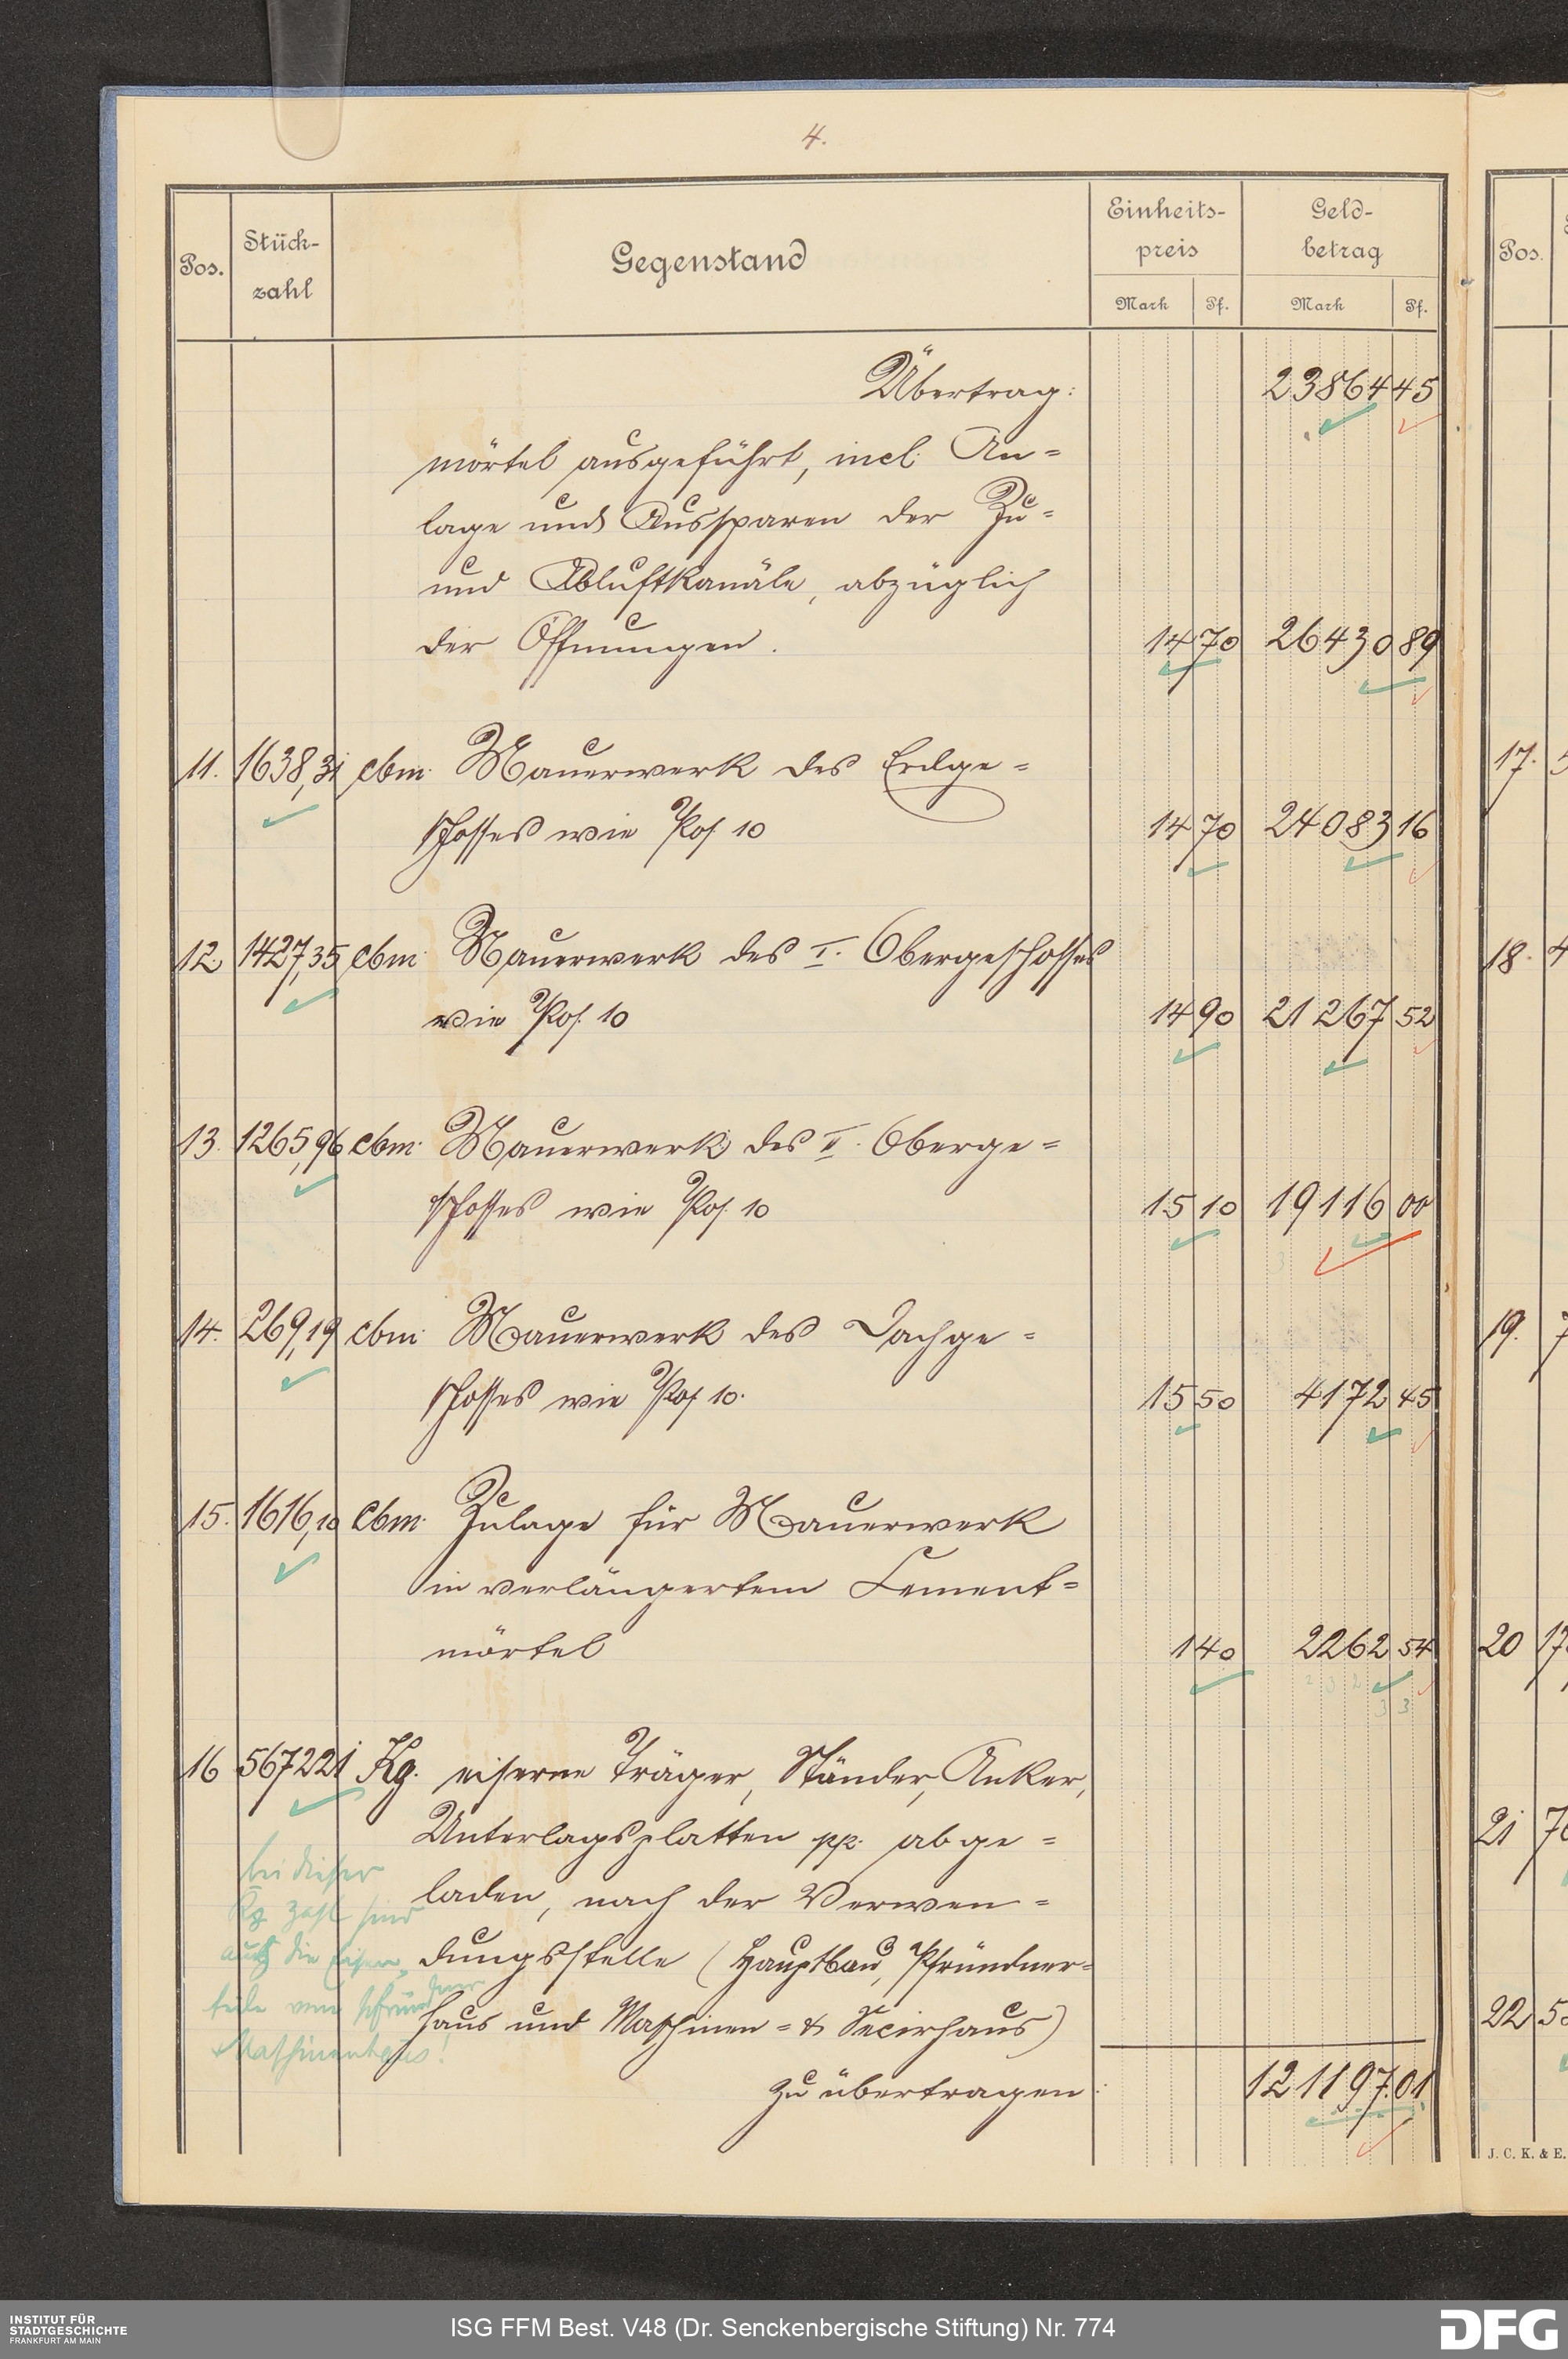 4.
Pos. Stück-zahl Gegenstand Einheits-preis Geld-betrag
Mark Pf. Mark Pf.
Übertrag: 23864 45
mörtel ausgeführt, incl. An=
lage und Aussparen der Zu=
und Abluftkanäle, abzüglich
der Öffnungen. 14 70 26430 89
11. 1638,31 cbm. Mauerwerk des Erdge=
schosses wie Pos. 10 14 70 24083 16
12. 1427,35 cbm Mauerwerk des I. Obergeschosses
wie Pos. 10 14 90 21267 52
13. 1265,96 cbm. Mauerwerk des II. Oberge=
schosses wie Pos. 10 15 10 19116 00
14. 269,19 cbm Mauerwerk des Dachge=
schosses wie Pos. 10. 15 50 4172 45
15. 1616,10 Cbm. Zulage für Mauerwerk
in verlängertem Cement=
mörtel 1 40 2262 54
16 567221 Kg. eiserne Träger, Ständer, Anker,
Unterlagsplatten pp. abge=
laden, nach der Verwen=
dungsstelle (Hauptbau, Pfründner=
haus und Maschinen= & Secirhaus)
zu übertragen: 121197.01
bei dieser
Kg Zahl sind
auch die Eisen
teile vom Pfründner
+ Maschinenhaus!
Pos.
17.
18.
19.
20
21
22
J. C. K. & E.
INSTITUT FÜR
STADTGESCHICHTE
FRANKFURT AM MAIN
ISG FFM Best. V48 (Dr. Senckenbergische Stiftung) Nr. 774
DFG